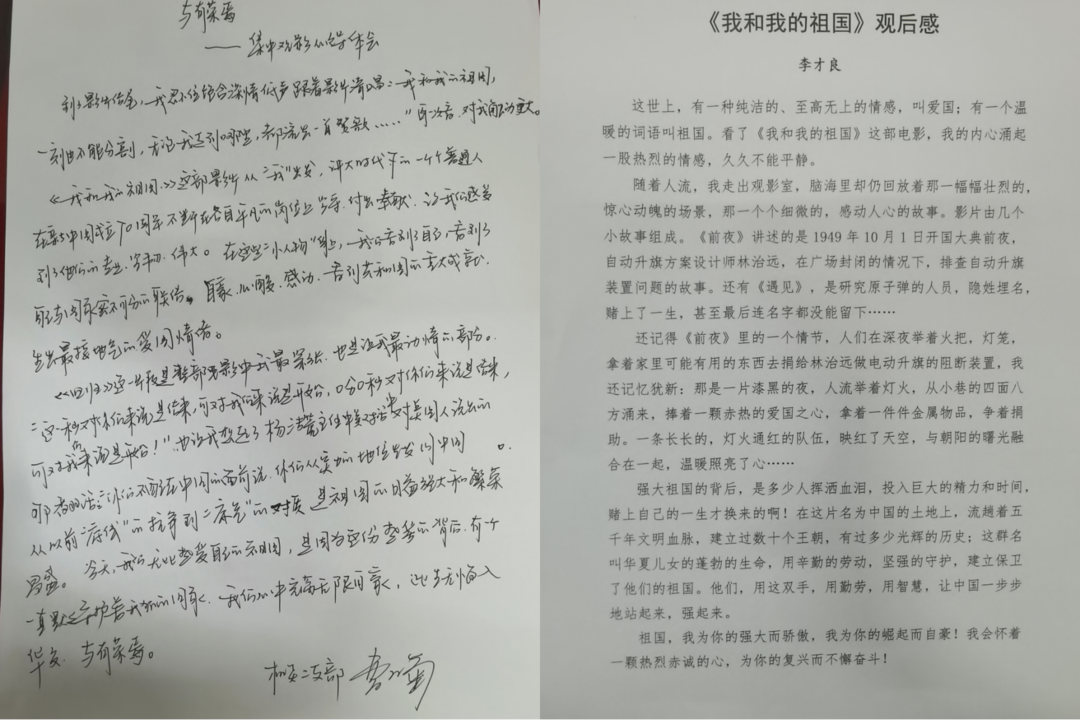 与有荣焉
——集中观影的心得体会
到了影片结尾，我忍不住饱含深情低声跟着影片清唱：“我和我的祖国，
一刻也不能分割，无论我走到哪里，都流出一首赞歌……”再次看，对我触动更大。
《我和我的祖国》这部影片从“我”出发，讲大时代下的一个个普通人
在新中国成立70周年不断在各自平凡的岗位上
到了他们的专业
。在这些“小人物”身上，我们看到了自己，看到了
自己与国家密不可分的联结。自豪、心酸、感动、看到
生出最接地气的爱国情怀。
《回归》这一片段是整部电影中我最深
，也是让我最动情的部分。
对你们来说是结束，可对我们来说是开始，0分0秒对你们来说是结束，
可对我们来说是开始！”也让我想起了杨洁篪主任
对美国人说出的
：“你们不配在中国的面前说，你们从实力的地位出发同中国
从以前
的抗争到“底气”的对
是祖国的日益强大和繁荣
昌盛。今天，我们无比热爱自己的祖国，是因为这份
的背后，有一个
一直默默守护着我们的国家，我们心中充满无限自豪，此生无悔入
华夏，与有荣焉。
二支部
《我和我的祖国》观后感
李才良
这世上，有一种纯洁的、至高无上的情感，叫爱国；有一个温
暖的词语叫祖国。看了《我和我的祖国》这部电影，我的内心涌起
一股热烈的情感，久久不能平静。
随着人流，我走出观影室，脑海里却仍回放着那一幅幅壮烈的，
惊心动魄的场景，那一个个细微的，感动人心的故事。影片由几个
小故事组成。《前夜》讲述的是 1949 年 10 月 1 日开国大典前夜，
自动升旗方案设计师林治远，在广场封闭的情况下，排查自动升旗
装置问题的故事。还有《遇见》，是研究原子弹的人员，隐姓埋名，
赌上了一生，甚至最后连名字都没能留下……
还记得《前夜》里的一个情节，人们在深夜举着火把，灯笼，
拿着家里可能有用的东西去捐给林治远做电动升旗的阻断装置，我
还记忆犹新：那是一片漆黑的夜，人流举着灯火，从小巷的四面八
方涌来，捧着一颗赤热的爱国之心，拿着一件件金属物品，争着捐
助。一条长长的，灯火通红的队伍，映红了天空，与朝阳的曙光融
合在一起，温暖照亮了心……
强大祖国的背后，是多少人挥洒血泪，投入巨大的精力和时间，
赌上自己的一生才换来的啊！在这片名为中国的土地上，流趟着五
千年文明血脉，建立过数十个王朝，有过多少光辉的历史；这群名
叫华夏儿女的蓬勃的生命，用辛勤的劳动，坚强的守护，建立保卫
了他们的祖国。他们，用这双手，用勤劳，用智慧，让中国一步步
地站起来，强起来。
祖国，我为你的强大而骄傲，我为你的崛起而自豪！我会怀着
一颗热烈赤诚的心，为你的复兴而不懈奋斗！